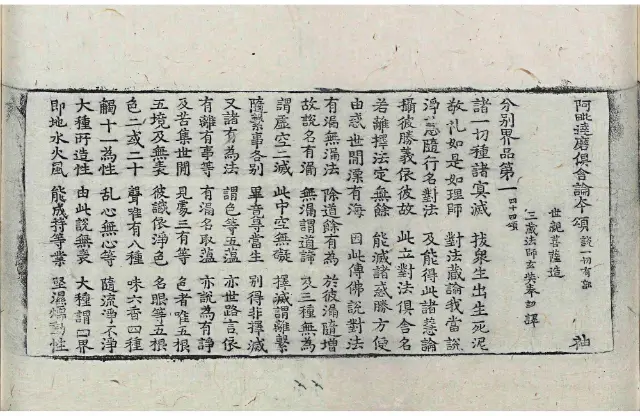 阿毗達磨俱舍論本頌 說一切有部
世親菩薩造
三藏法師玄奘奉詔譯 袖
分別界品第一 四十四頌
諸一切種諸冥滅 拔衆生出生死泥
敬礼如是如理師 對法藏論我當說
淨慧隨行名對法 及能得此諸慧論
攝彼勝義依彼故 此立對法俱舍名
若離擇法定無餘 能滅諸惑勝方便
由惑世間漂有海 因此傳佛說對法
有漏無漏法 除道餘有為 於彼漏隨增
故說名有漏 無漏謂道諦 及三種無為
謂虛空二滅 此中空無礙 擇滅謂離繫
隨繫事各別 畢竟导當生 別得非擇滅
又諸有為法 謂色等五蘊 亦世路言依
有離有事等 有漏名取蘊 亦說為有諍
及苦集世間 見處三有等 色者唯五根
五境及無表 彼識依淨色 名眼等五根
色二或二十 聲唯有八種 味六香四種
觸十一為性 亂心無心等 隨流淨不淨
大種所造性 由此說無表 大種謂四界
即地水火風 能成持等業 堅濕煖動性